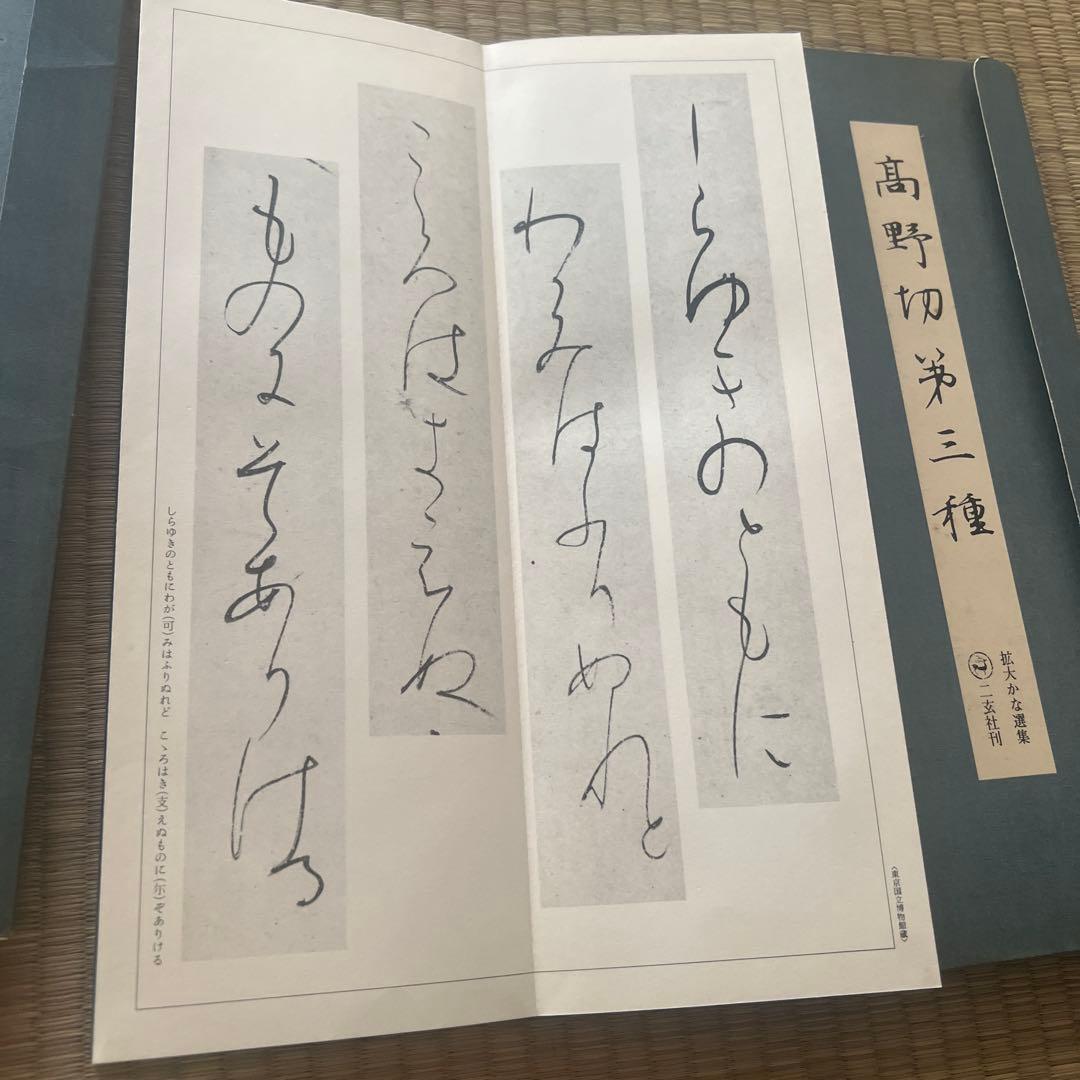 高野切第三種
拡大かな選集
二玄社刊
しらゆきのともに
わかみはふりぬれと
こゝろはきえぬ
ものにそありける
しらゆきのともにわが(可)みはふりぬれど こゝろはき(支)えぬものに(尓)ぞありける
〈東京国立博物館蔵〉